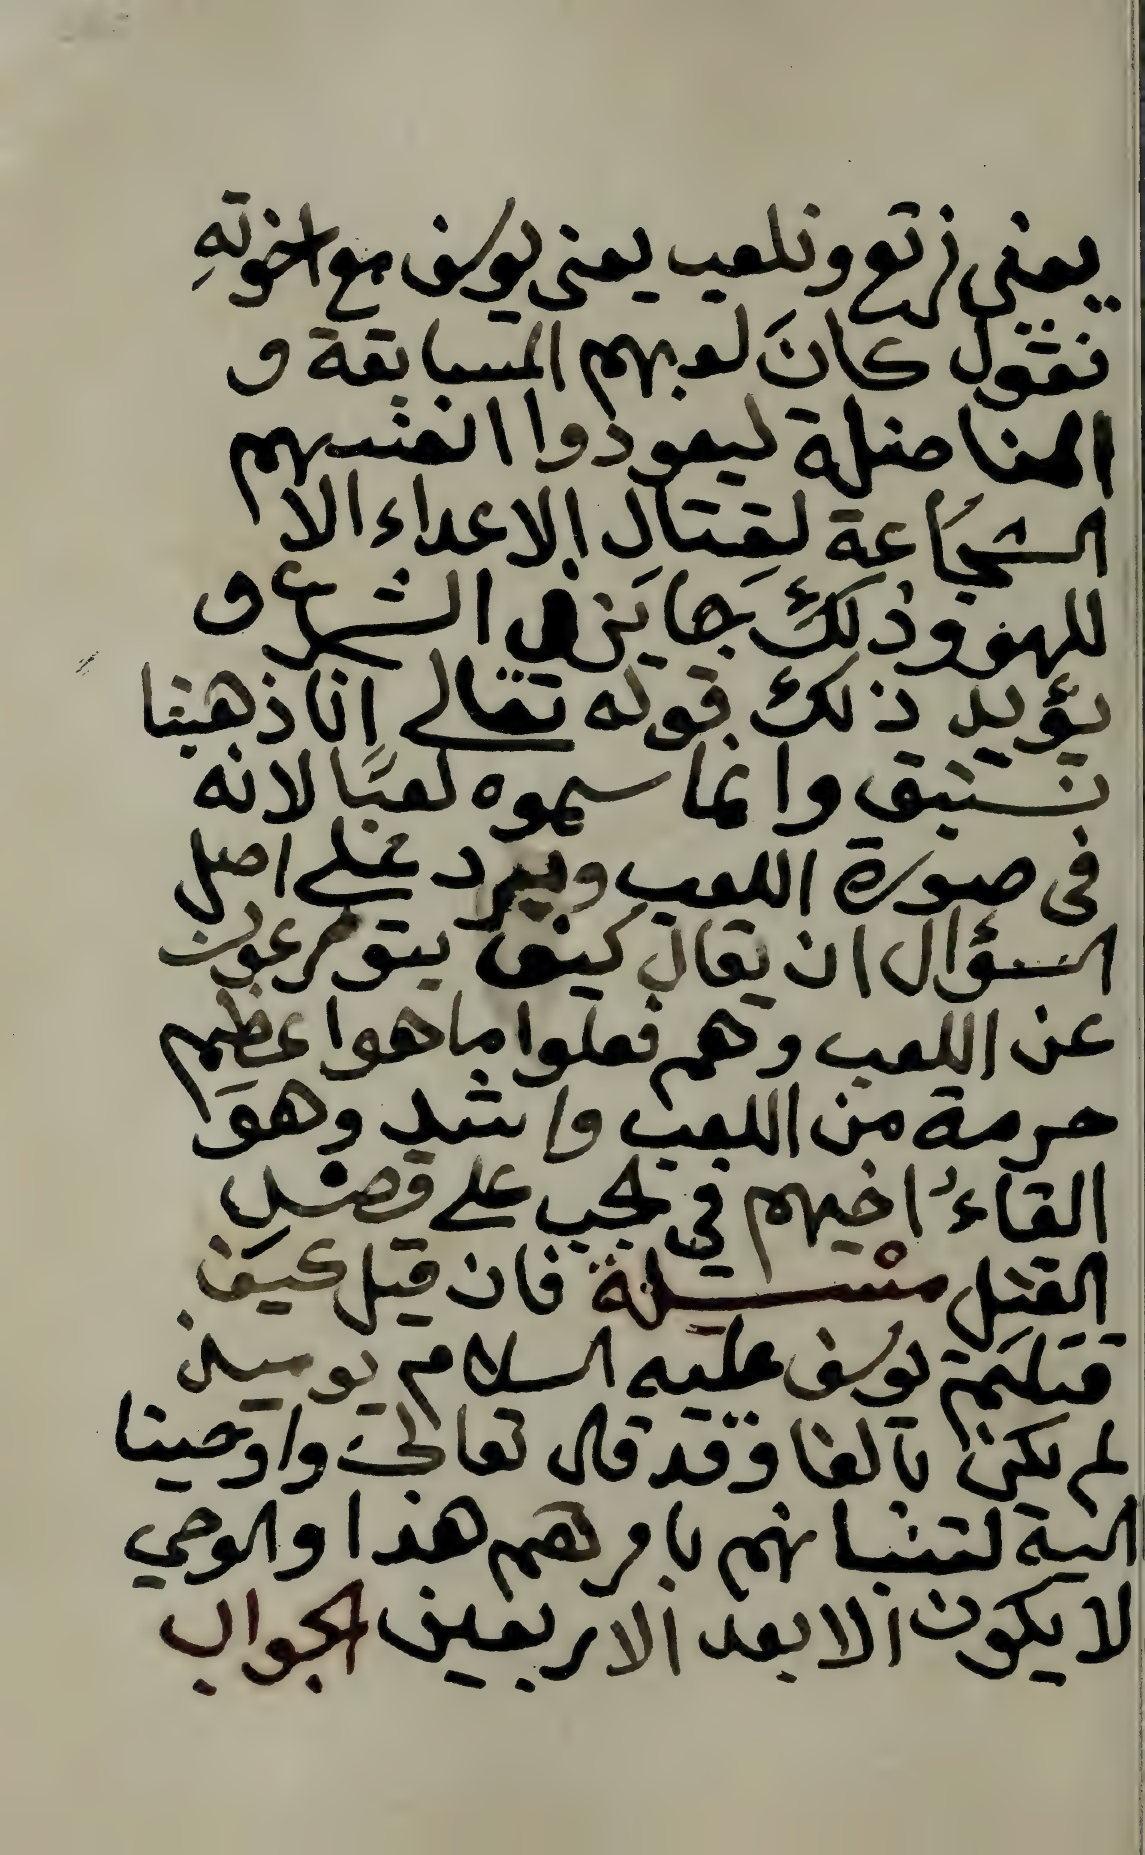 يعني نرتع ونلعب يعني يوسف مع اخوتهِ
نقول كانَ لعبهم المسابقة و
المناضلة ليعودوا انفسهم
الشجاعة لقتالِ الاعداء الا
للهو وذلكَ جايز في الشرع و
يؤيد ذلك قوله تعالى انا ذهبنا
نستبق وانما سموه لعبًا لانه
في صورة اللعب ويرد على اصل
السؤال ان يقال كيف يتورعون
عن اللعب وهم فعلوا ما هوا عظم
حرمة من اللعب واشد وهوَ
القاءُ اخيهم في الجب على قصدِ
القتل مسْئلة فان قيل كيف
قتلهم يوسف عليه السلام يوميذ
لم يكن بالغا وقد قال تعالى واوحينا
اليه لتنبانهم بامرهم هذا والوحي
لا يكون الا بعد الاربعين الجواب